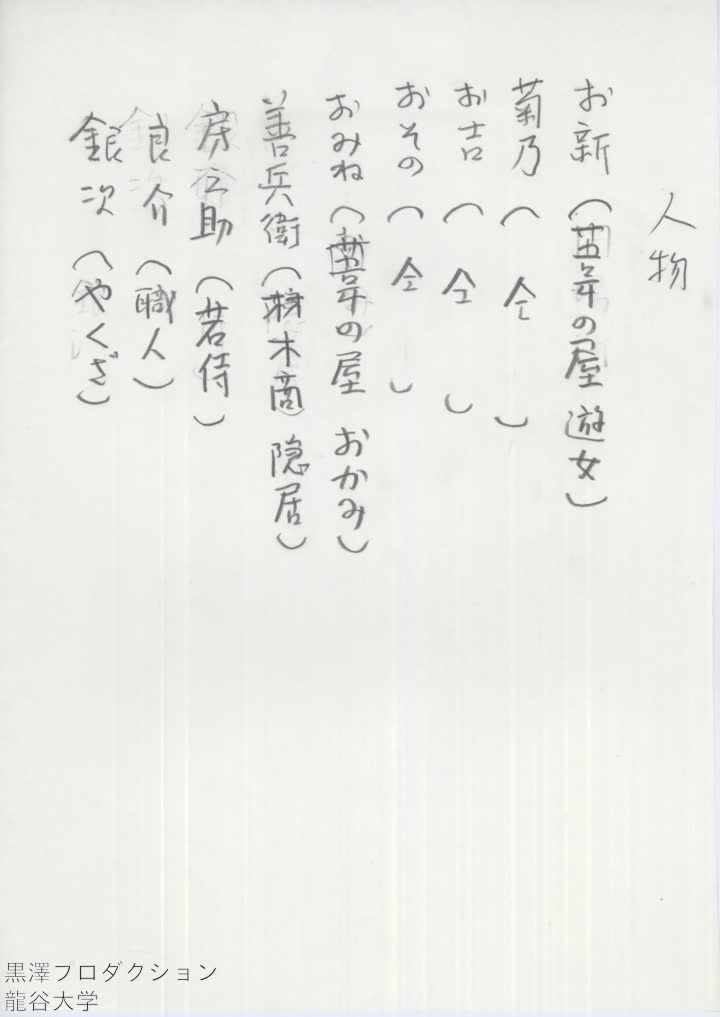 人物
お新（葦の屋 遊女）
菊乃（仝）
お吉（仝）
おその（仝）
おみね（葦の屋 おかみ）
善兵衛（材木商 隠居）
房之助（若侍）
良介（職人）
銀次（やくざ）
黒澤プロダクション
龍谷大学